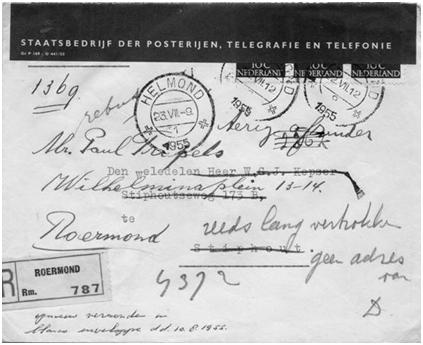 STAATSBEDRIJF DER POSTERIJEN, TELEGRAFIE EN TELEFONIE
10C 10C 10C
NEDERLAND NEDERLAND
VII.12 VII.12
1955 1955
136g.
HELMOND
23.VII.-9.
1
1955
retour
afzender
Mr. Paul
Den weledelen Heer W.G.J. Kepser
Wilhelminaplein 13-14.
Stiphoutseweg 173 B.
te
Roermond
Stiphout
reeds lang vertrokken
geen adres
van
D.
R
ROERMOND
Rm. 787
4372
opnieuw verzonden in
blanco enveloppe d.d. 10.8.1955.